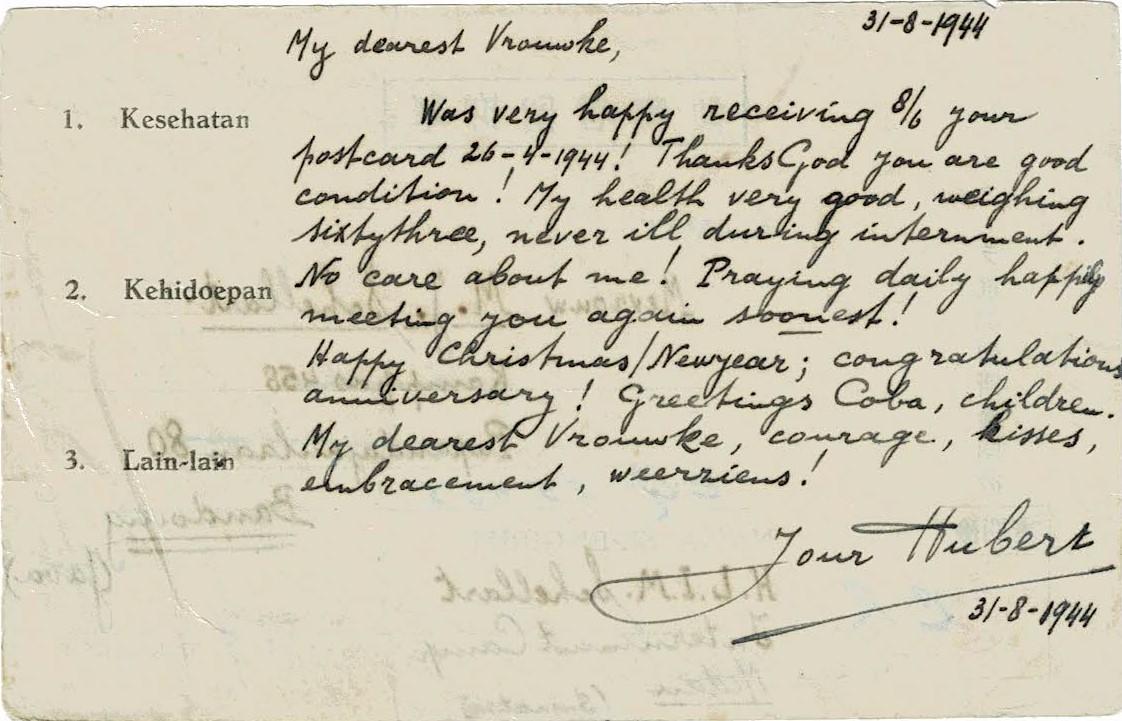 31-8-1944
My dearest Vrouwke,
1. Kesehatan
Was very happy receiving 8/6 your
postcard 26-4-1944! ThanksGod you are good
condition! My health very good, weighing
sixtythree, never ill during internment.
2. Kehidoepan
No care about me! Praying daily happily
meeting you again soonest!
Happy Christmas/Newyear; congratulations
anniversary! Greetings Coba, children.
3. Lain-lain
My dearest Vrouwke, courage, kisses,
embracement, weerziens!
Your Hubert
31-8-1944